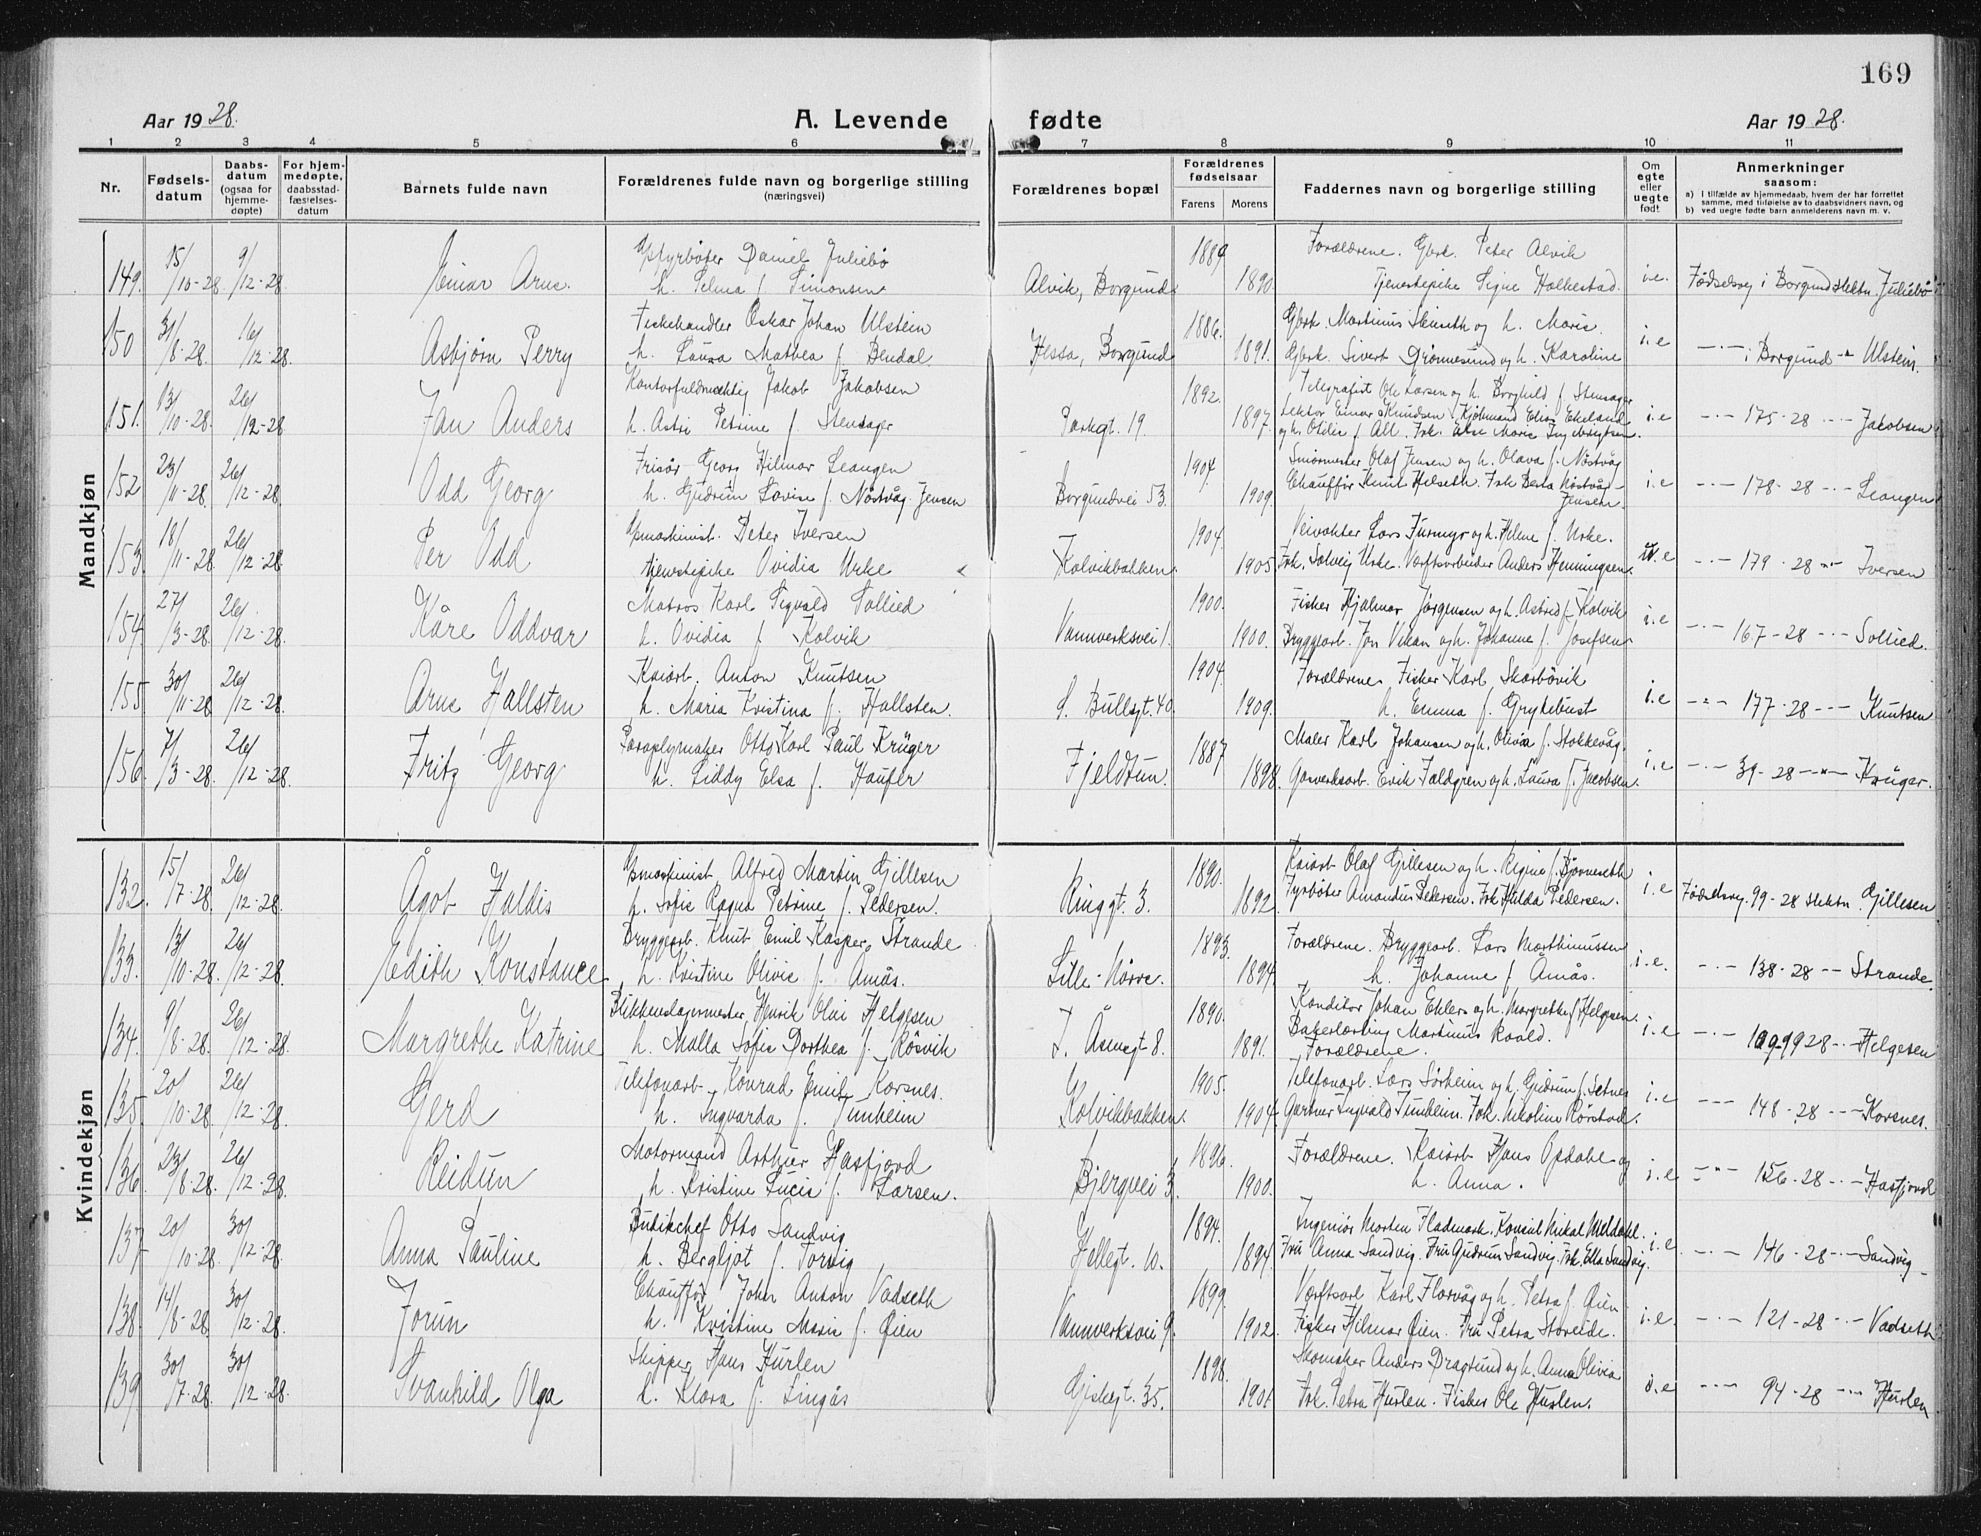 169
Aar 1928.
A. Levende fødte
Aar 1928.
1 2 3 4 5 6 7 8 9 10 11
Nr.
Fødsels-datum
Daabs-datum (ogsaa for hjemme-døpte)
For hjem-medøpte, daabsstad-fæstelses-datum
Barnets fulde navn
Forældrenes fulde navn og borgerlige stilling (næringsvei)
Forældrenes bopæl
Forældrenes fødselsaar
Farens Morens
Faddernes navn og borgerlige stilling
Om egte eller uegte født.
Anmerkninger saasom:
a) I tilfælde av hjemmedaab, hvem der har forrettet samme, med tilføielse av to daabsvidners navn, og
b) ved uegte fødte barn anmelderens navn m. v.
Mandkjøn
149. 15/10-28. 9/12-28 Einar Arne.
Fyrbøter Daniel Juliebø
h. Selma f. Simonsen
Alvik, Borgund 1889 1890.
Forældrene. Gbrk. Peter Alvik
Tjenestepike Signe Holkestad.
i.e. Fødselsvej i Borgund Juliebø
150 31/8-28. 16/12-28. Asbjørn Perry
Fiskehandler Oskar Johan Ulstein
h. Laura Mathea f. Bendal.
Hessa, Borgund 1886. 1891.
Gbrk. Martinus og h. Marie.
Gbrk. Sivert Grønnesund og h. Karoline
i.e -·- i Borgund -"- Ulstein.
151. 13/10-28. 26/12-28 Jan Anders
Kontorfuldmektig Jakob Jakobsen
h. Astri Petrine f. Stensager
Parkgt. 19. 1892. 1897.
Telegrafist Ole Larsen og h. Borghild f. Stensager
Lektor Einar Knudsen. Kjøbmand Elias Ekeland
og h. Otilie f. All. Frk. Else Marie
i.e -·- 175-28 -·- Jakobsen
152 23/11-28. 26/12-28. Odd Georg
Frisør Georg Hilmar Leangen
h. Gudrun Lovise f. Nøstvåg-Jensen
Borgundvei 53. 1904. 1909.
Olaf Jensen og h. Olava f. Nøstvåg
Chauffør Knut Hilseth. Frk Berta Nøstvåg-
Jensen.
i.e -·- 178-28 -·- Leangen
153. 18/11-28. 26/12-28. Per Odd
Peter Iversen
tjenestepike Ovidia Urke
Kolvikbakken. 1904. 1905
Veivokter Lars Furmyr og h. Helene f. Urke.
Frk. Solveig Urke. Verftsarbeider Anders Henningsen.
u.e -·- 179-28 -"- Iversen
154. 27/3-28. 26/12-28. Kåre Oddvar
Matros Karl Sigvald Sollied
h. Ovidia f. Kolvik
Vannverksvei 1. 1900. 1900.
Fisker Hjalmar Jørgensen og h. Astrid f. Kolvik
Bryggearb. Jon Vikan og h. Johanne f. Josefsen.
i.e -·- 167-28 -·- Sollied.
155 30/11-28 26/12-28. Arne Hallsten
Kaiarb. Anton Knutsen
h. Maria Kristina f. Hallsten.
S. Bullsgt. 40. 1904. 1909.
Forældrene. Fisker Karl Skarbøvik
h. Emma f. Grytebust
i.e -·- 177-28 -·- Knutsen
156. 7/3-28. 26/12-28. Fritz Georg
Paraplymaker Otto Karl Paul Krüger
h. Liddy Elsa f. Haufer
Fjeldtun. 1887 1898.
Maler Karl Johansen og h. Olivia f. Stokkevåg.
Gasverksarb. Erik Faldgren og h. Laura f. Jacobsen.
i.e -·- 39-28 -"- Krüger.
Kvindekjøn
132. 15/7-28. 26/12-28. Ågot Haldis
Alfred Martin Gillesen
h. Sofie Ragna Petrine f. Pedersen.
Ringgt. 3. 1890. 1892.
Kaiarb. Olaf Gillesen og h. Regine f. Bjørneseth
Fyrbøter Amandus Pedersen. Frk. Hilda Pedersen.
i.e Fødselsvej. 99-28 Gillesen
133. 13/10-28. 26/12-28. Edith Konstance
Bryggearb. Knut Emil Kasper Strande
h. Kristine Olivie f. Åmås.
Lille-Nørve. 1893. 1894.
Forældrene. Bryggearb. Lars Marthinussen
h. Johanne f. Åmås.
i.e. -·- 138-28 -- Strande.
134. 9/8-28. 26/12-28 Margrethe Katrine
Blikkenslagermester Henrik Olai Helgesen
h. Malla Sofie Dorthea f. Røsvik
I. Åsensgt 8. 1890. 1891.
Konditor Johan Ehlers og h. Margrethe f. Helgesen.
Bakerlærling Martinus Roald.
Forældrene.
i.e -·- 109-28 -·- Helgesen
135 20/10-28. 26/12-28. Gerd
Telefonarb. Konrad Emil Korsnes.
h. Ingvarda f. Tunheim
Kolvikbakken. 1905. 1904.
Telefonarb. Lars Sørheim og h. Gudrun f. Setnes
Gartner Ingvald Tunheim. Frk. Nikoline Rørstad.
i.e -·- 148-28 -·- Korsnes.
136. 23/8-28. 26/12-28. Reidun
Motormand Arthur Hasfjord
h. Kristine Lucie f. Larsen.
Bjergvei 3. 1896. 1900.
Forældrene. Kaiarb Hans Opdahl og
h. Anna.
i.e -"- 156-28 -·- Hasfjord
137. 20/10-28. 30/12-28. Anna Pauline
Butikchef Otto Sandvig
h. Bergljot f. Torvig
Hellegt. 10. 1894. 1894.
Ingeniør Morten Flademark. Konsul Mikal Meldahl.
Fru Anna Sandvig. Fru Gudrun Sandvig. Frk. Ella Sandvig.
i.e -·- 146-28 -·- Sandvig
138. 14/8-28. 30/12-28. Jorun
Chauffør John Anton Vadseth
h. Kristine Marie f. Øien
Vannverksvei 9. 1899. 1902.
Verftsarb Karl Florvåg og h. Petra f. Øien
Fisker Hilmar Øien. Fru Petra Storeide.
i.e. -·- 121-28 -·- Vadseth
139 30/7-28. 30/12-28. Svanhild Olga
Skipper Hans Hurlen
h. Klara f. Lingås
Giskegt. 35. 1898. 1901.
Skomaker Anders Dragsund og h. Anna Olivia
Frk. Petra Hurlen. Fisker Ole Hurlen.
i.e -·- 94-28 -·- Hurlen